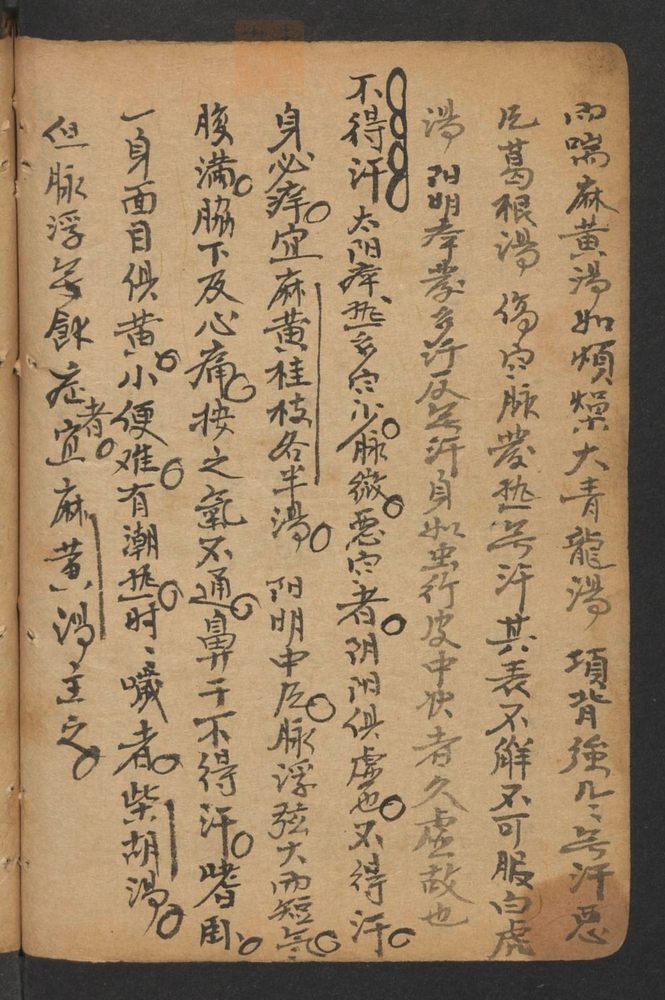 而喘麻黄湯如煩燥大青龍湯 項背強几〻旡汗悪
尺葛根湯 傷寒脉發热旡汗其表不觧不可服白虎
湯 阳明本發多汗反旡汗身如虫行皮中状者久虚故也
不得汗 太阳病热多寒少脉微悪寒者阴阳俱虚也不得汗
身必痒宜麻黄桂枝各半湯 阳明中尺脉浮弦大而短氣
腹满脇下及心痛按之氣不通鼻干不得汗嗜卧
一身面目俱黄小便难有潮热时〻噦者柴胡湯
但脉浮旡餘症者宜麻黄湯主之